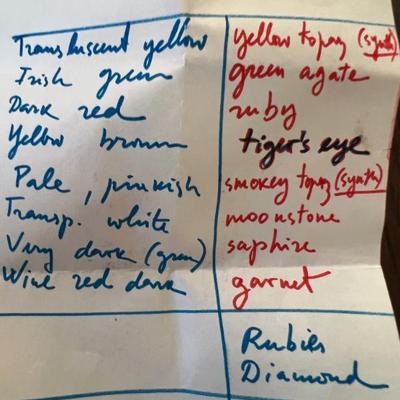 Transluscent yellow yellow topaz (synth)
Irish green green agate
Dark red ruby
Yellow brown tiger's eye
Pale, pinkish smokey topaz (synth)
Transp. white moonstone
Very dark (green) saphire
Wine red dark garnet
Rubies
Diamond